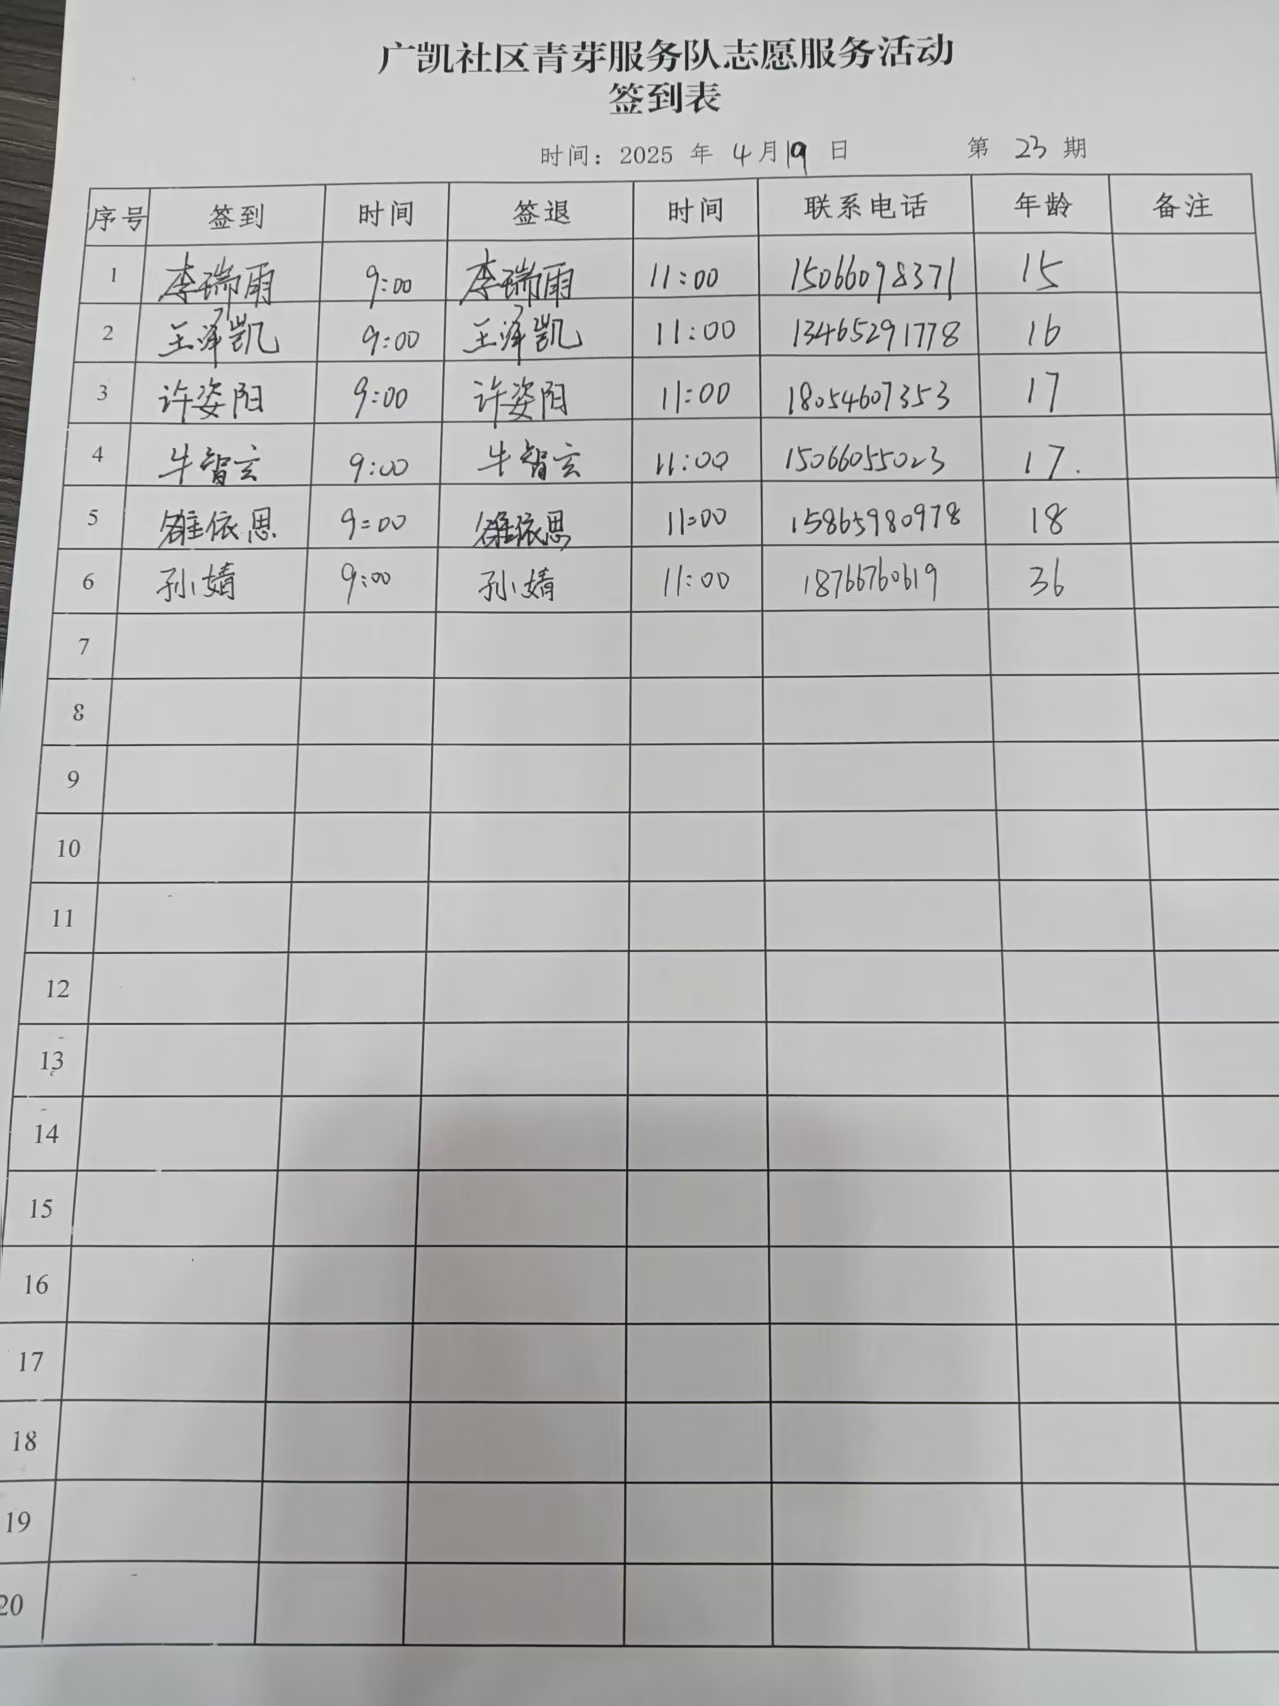 广凯社区青芽服务队志愿服务活动
签到表
时间：2025 年 4月19 日 第 23 期
序号 签到 时间 签退 时间 联系电话 年龄 备注
1 李瑞雨 9:00 李瑞雨 11:00 15066098371 15
2 王泽凯 9:00 王泽凯 11:00 13465291778 16
3 许姿阳 9:00 许姿阳 11:00 18054607353 17
4 牛智玄 9:00 牛智玄 11:00 15066055023 17.
5 依思 9:00 依思 11:00 15865980978 18
6 孙婧 9:00 孙婧 11:00 18766760619 36
7
8
9
10
11
12
13
14
15
16
17
18
19
20